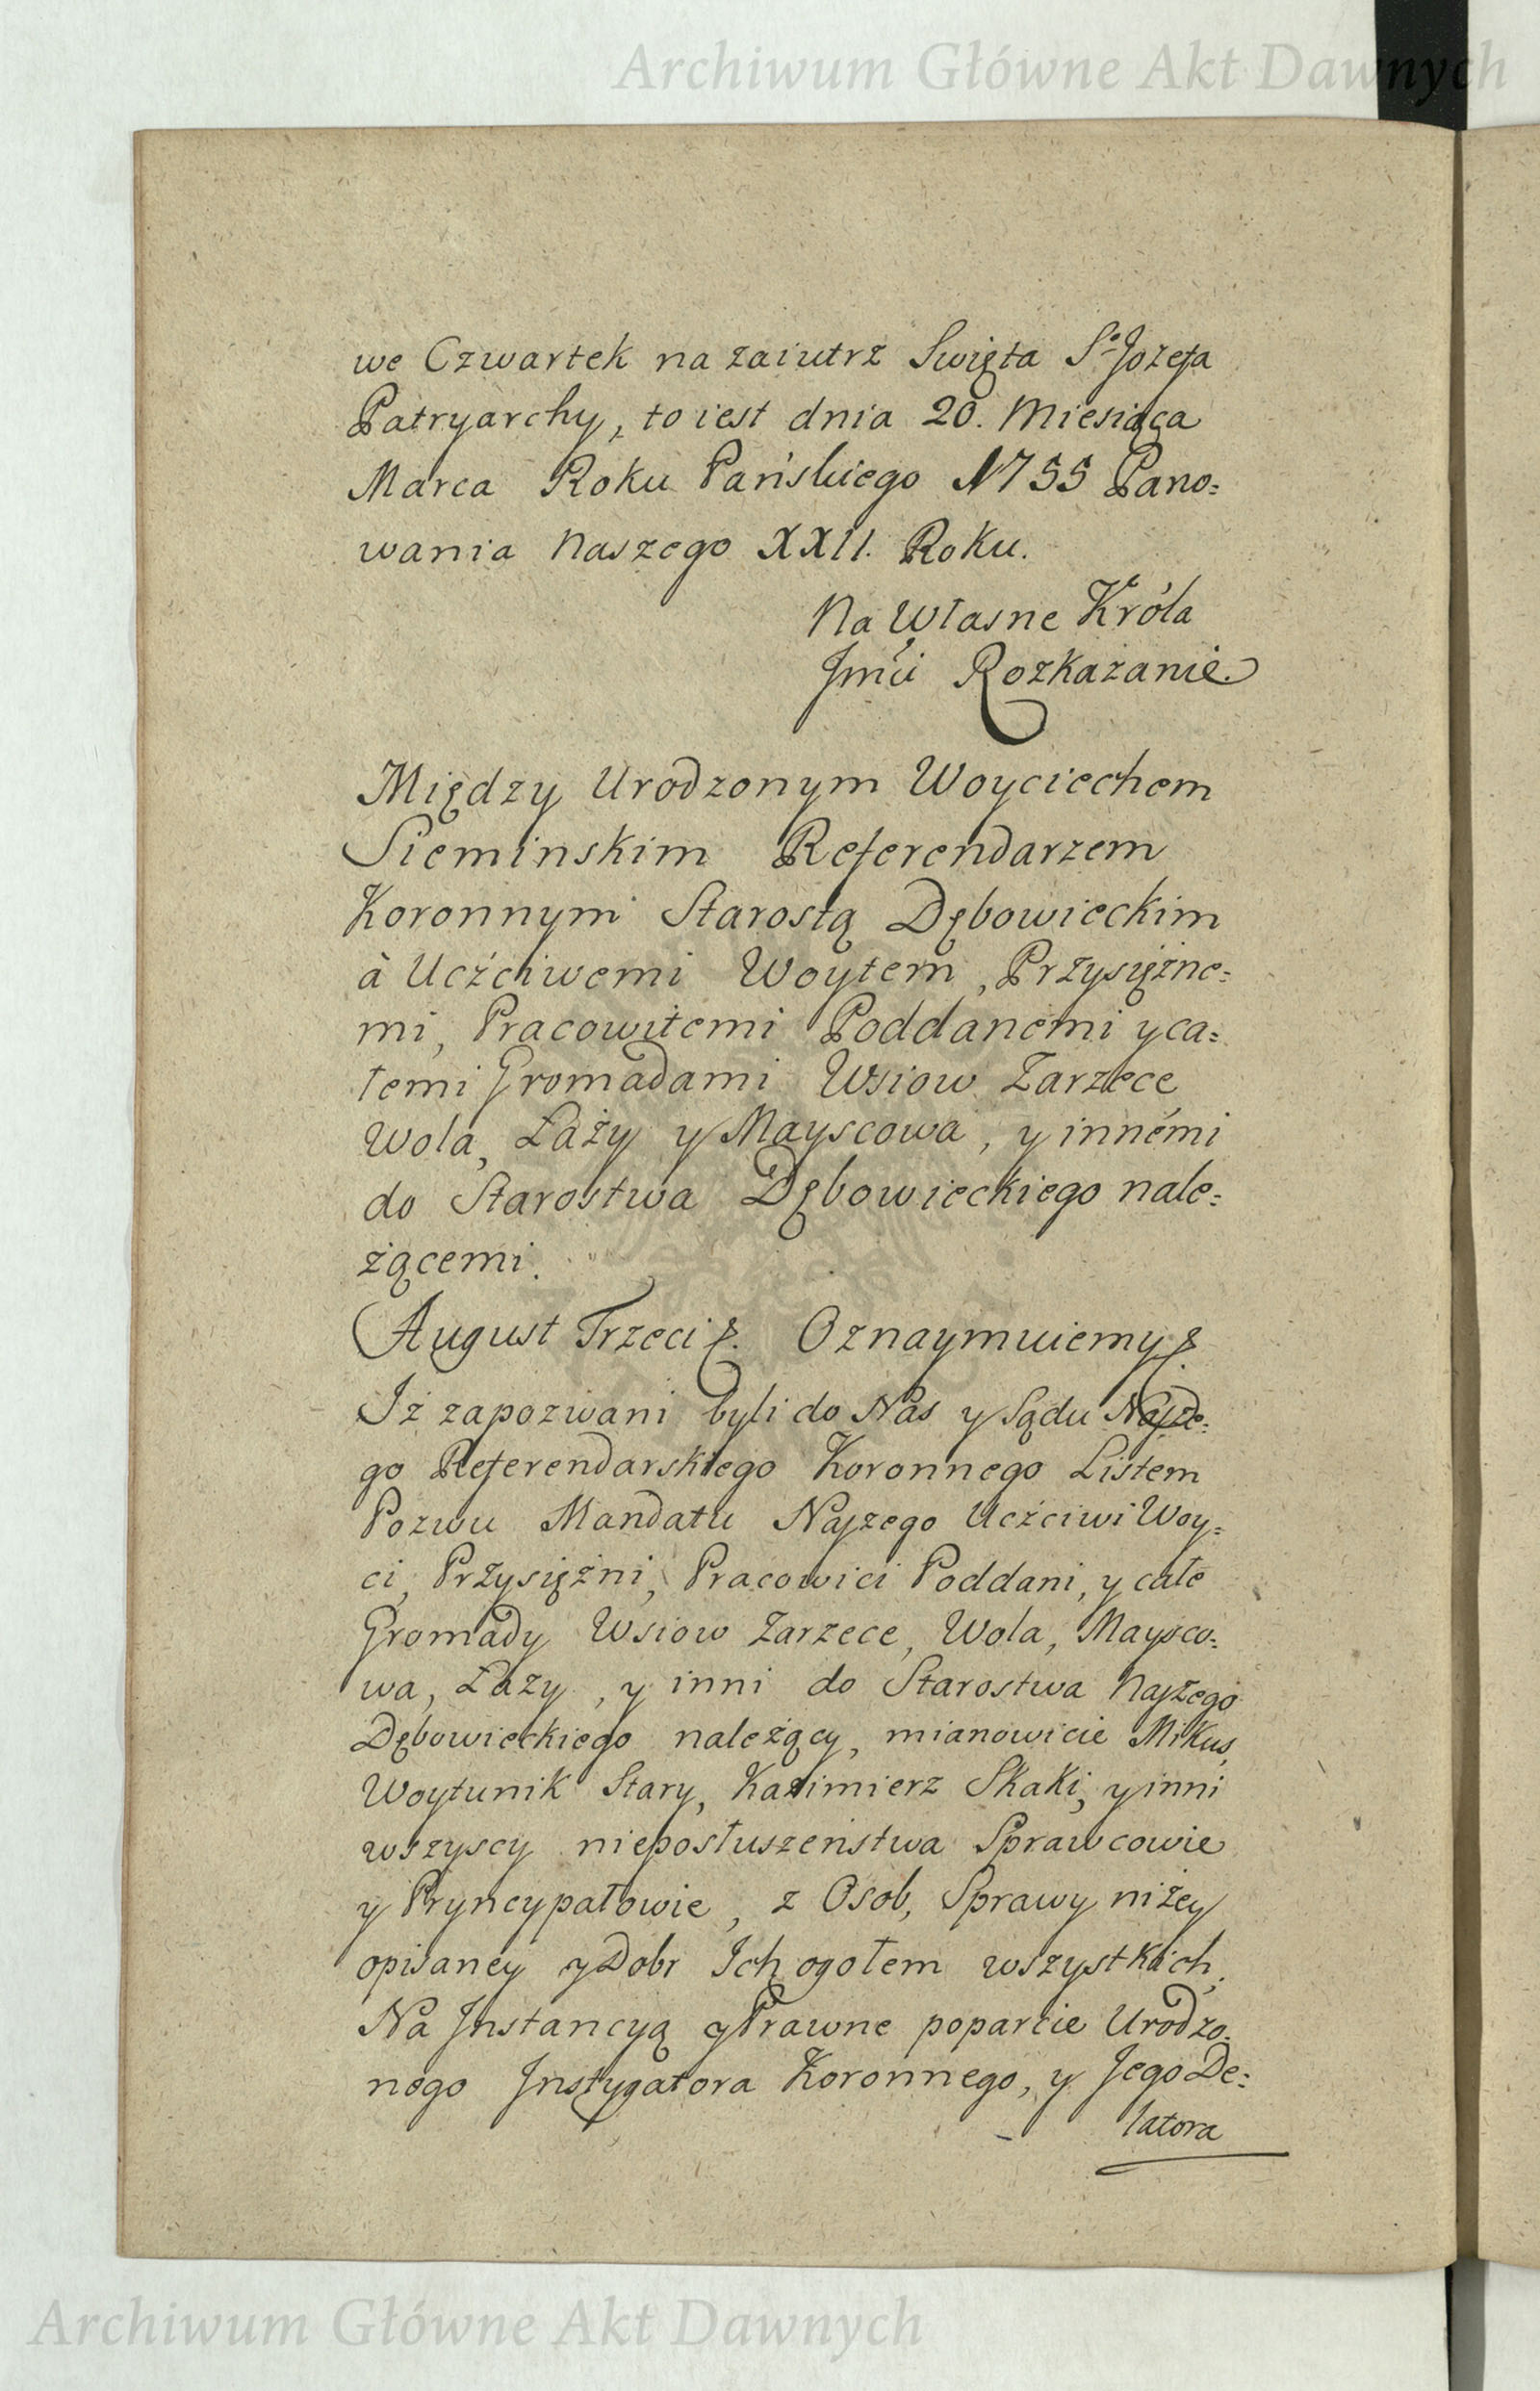 Archiwum Główne Akt Dawnych
we Czwartek na zaiutrz Swięta Sº Jozefa
Patryarchy, to iest dnia 20. Miesiąca
Marca Roku Pańskiego 1755 Pano=
wania Naszego XXII. Roku.
Na Własne Króla
Jmći Rozkazanie.
Między Urodzonym Woyciechem
Sieminskim Referendarzem
Koronnym Starostą Dębowieckim
à Uczciwemi Woytem, Przysiężne=
mi, Pracowitemi Poddanemi y ca=
łemi Gromadami Wsiow Zarzece
Wola, Łaży y Mayscowa, y innémi
do Starostwa Dębowieckiego nale=
żącemi.
August Trzeci &. Oznaymuiemy &.
Iż zapozwani byli do Nas y Sądu Nasze=
go Referendarskiego Koronnego Listem
Pozwu Mandatu Naszego Uczciwi Woy=
ci, Przysiężni, Pracowici Poddani, y całe
Gromady Wsiow Zarzece, Wola, Maysco=
wa, Łazy, y inni do Starostwa Naszego
Dębowieckiego należący, mianowicie Mikus,
Woytunik Stary, Kazimierz Skaki, y inni
wszyscy nieposłuszeństwa Sprawcowie
y Pryncypałowie, z Osob, Sprawy niżey
opisaney y Dobr Ich ogołem wszystkich,
Na Jnstancyą y Prawne poparcie Urodzo=
nego Jnstygatora Koronnego, y Jego De=
latora
Archiwum Główne Akt Dawnych